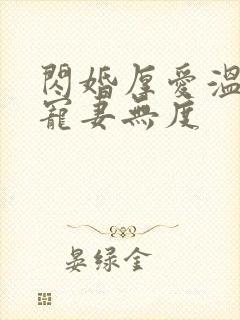 閃婚厚愛溫
寵妻無度
晏绿金